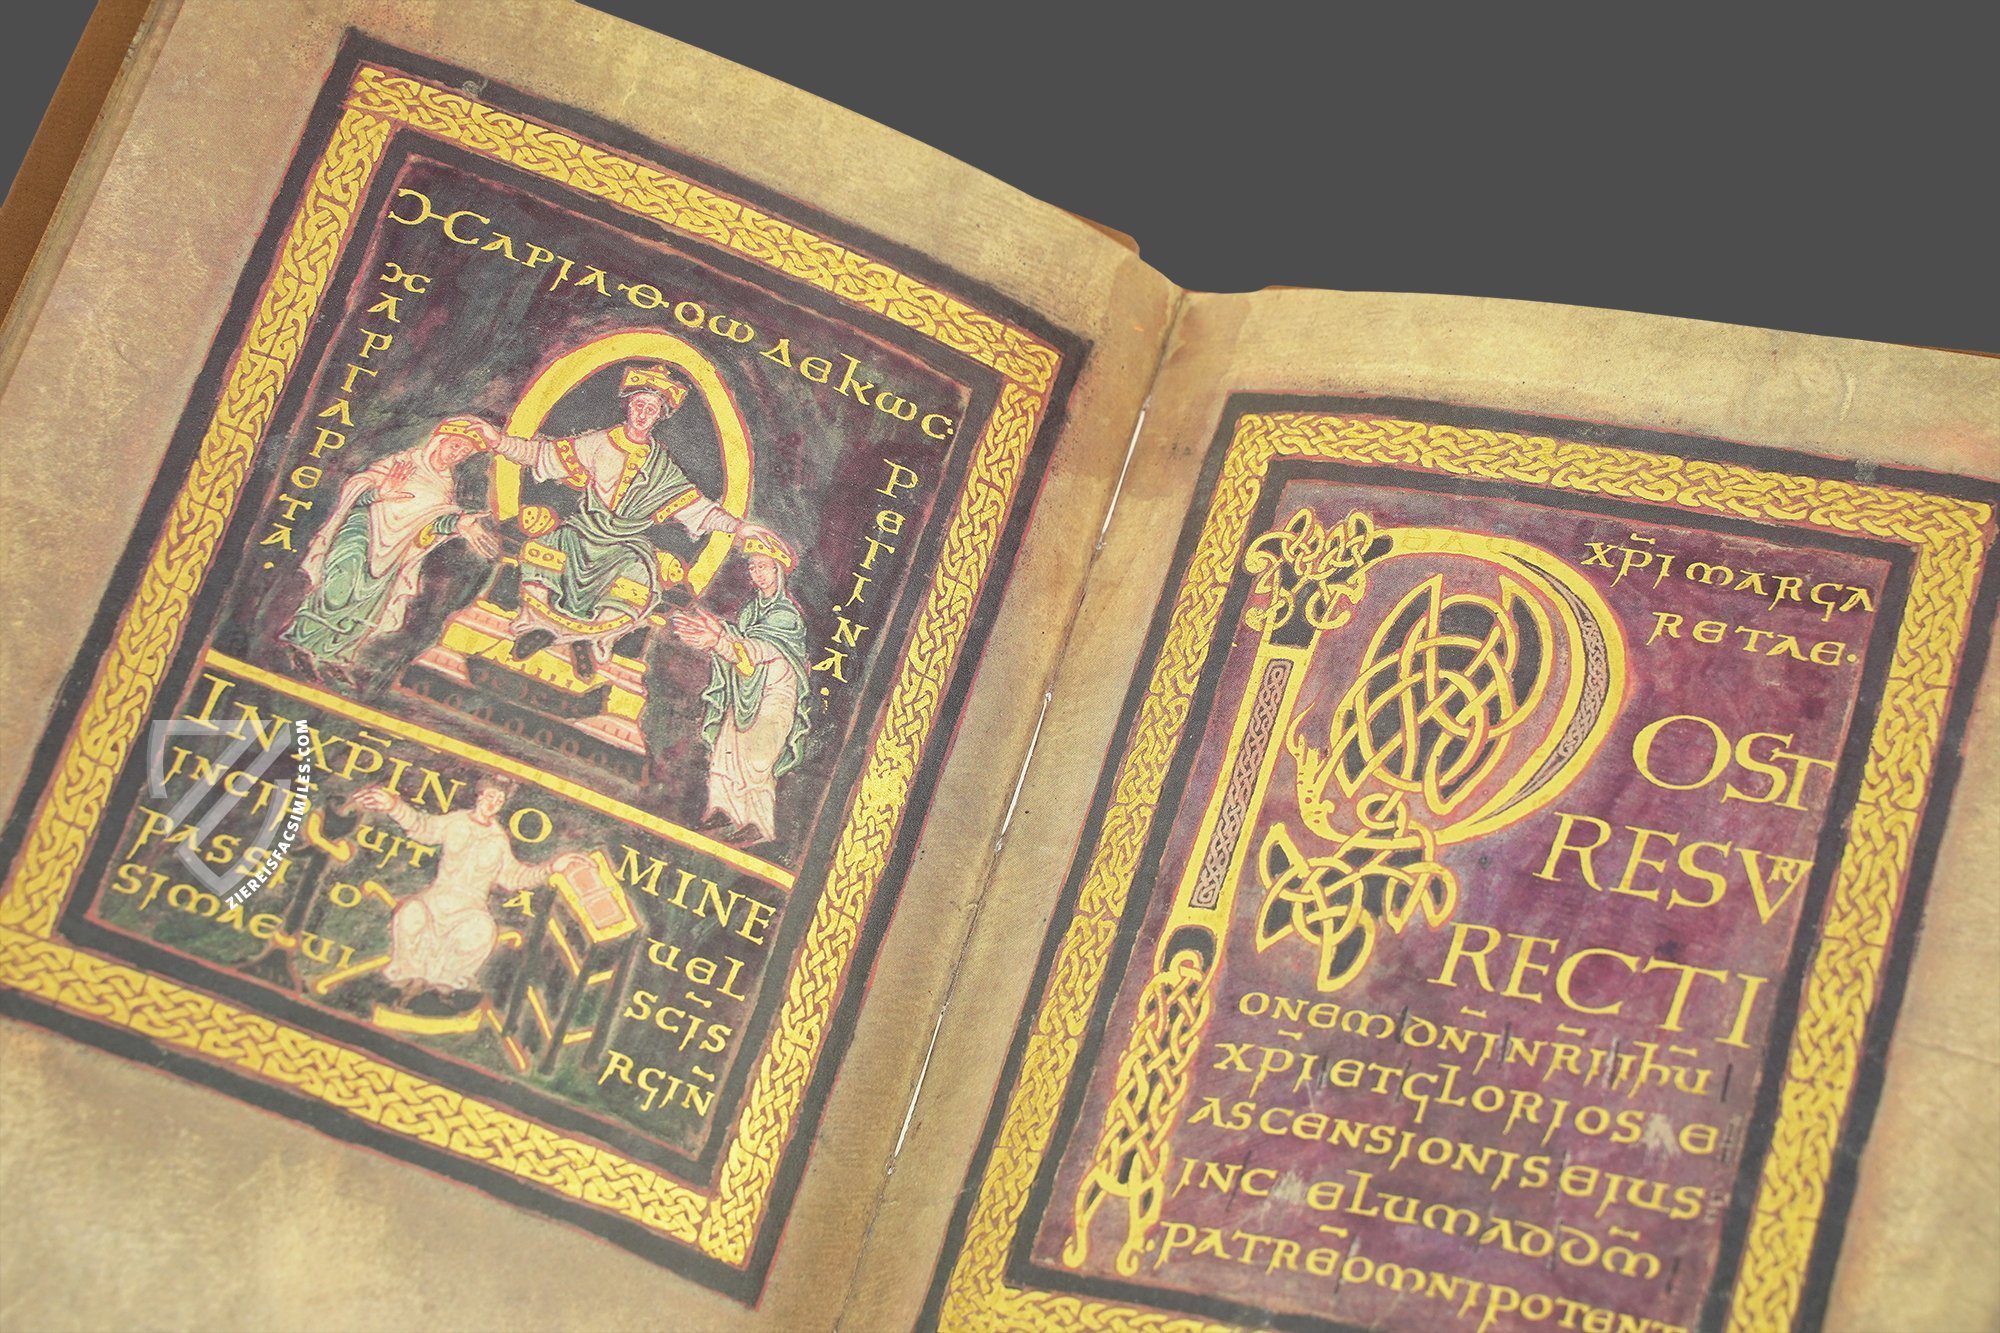 ΜΑΡΙΑ·Θ·ΟΩΔΕΚΩϹ·
ΜΑΡΓΑΡΕΤΑ·
ΡΕΓΙΝΑ·
IN XP̄I NOMINE
INCIP UITA UEL
PASSIO SCĪS
SIMAE UIRGIN̄
XP̄I MARGA
RETAE·
POST
RESVR
RECTI
ONEM DN̄I NR̄I IHŪ
XP̄I ET GLORIOSAE
ASCENSIONIS EIUS
IN CAELUM AD DM̄
PATRĒ OMNIPOTENT
ZIEREISFACSIMILES.COM